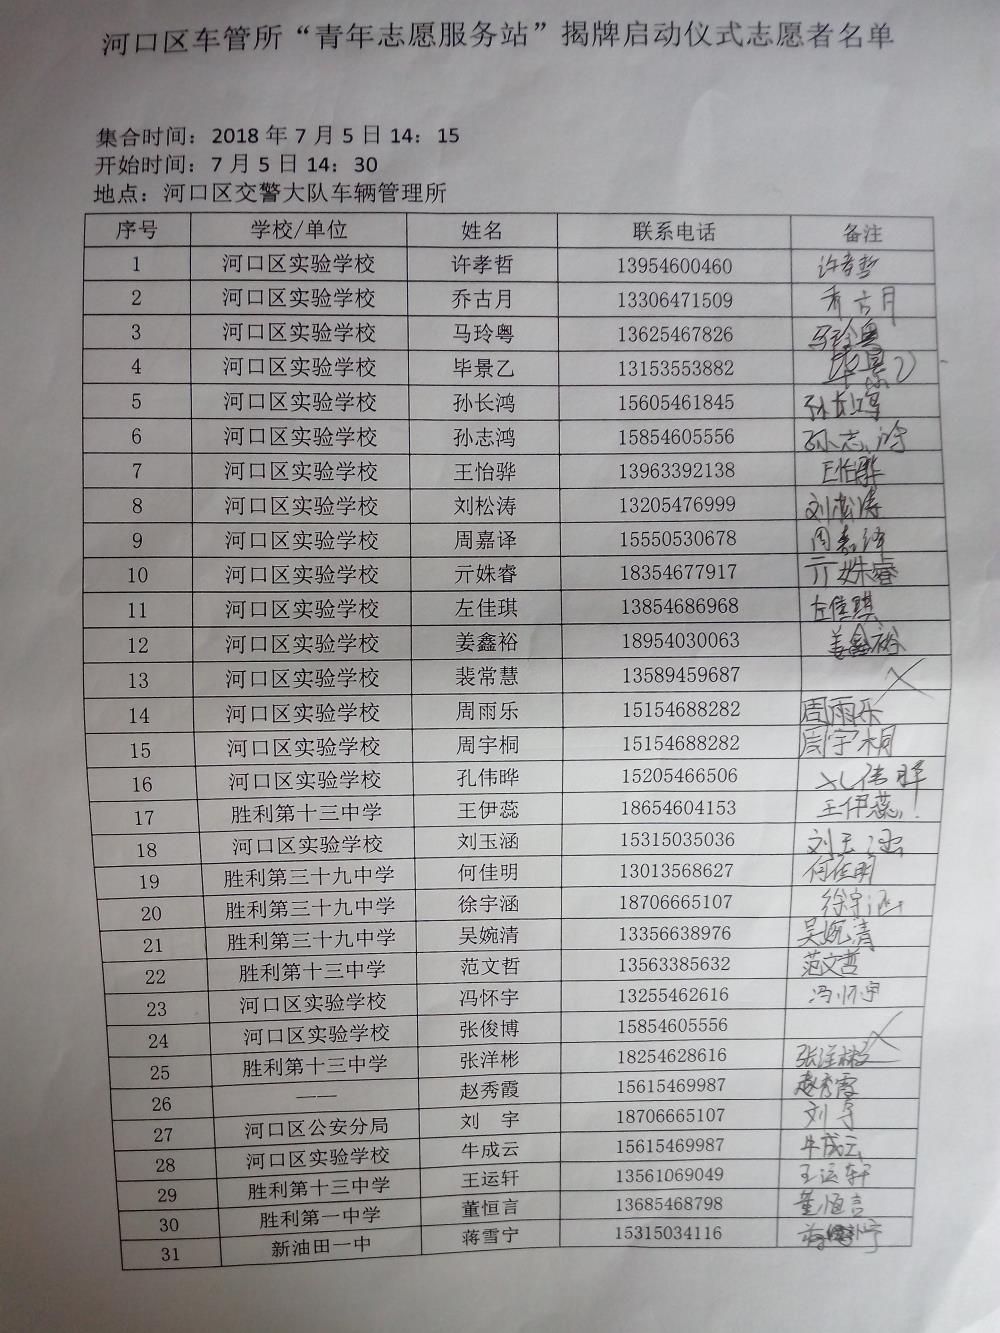 河口区车管所“青年志愿服务站”揭牌启动仪式志愿者名单
集合时间：2018 年 7 月 5 日 14：15
开始时间：7 月 5 日 14：30
地点：河口区交警大队车辆管理所
序号 学校/单位 姓名 联系电话 备注
1 河口区实验学校 许孝哲 13954600460 许孝哲
2 河口区实验学校 乔古月 13306471509 乔古月
3 河口区实验学校 马玲粤 13625467826 马玲粤
4 河口区实验学校 毕景乙 13153553882 毕景乙
5 河口区实验学校 孙长鸿 15605461845 孙长鸿
6 河口区实验学校 孙志鸿 15854605556 孙志鸿
7 河口区实验学校 王怡骅 13963392138 王怡骅
8 河口区实验学校 刘松涛 13205476999 刘松涛
9 河口区实验学校 周嘉译 15550530678 周嘉译
10 河口区实验学校 亓姝睿 18354677917 亓姝睿
11 河口区实验学校 左佳琪 13854686968 左佳琪
12 河口区实验学校 姜鑫裕 18954030063 姜鑫裕
13 河口区实验学校 裴常慧 13589459687
14 河口区实验学校 周雨乐 15154688282 周雨乐
15 河口区实验学校 周宇桐 15154688282 周宇桐
16 河口区实验学校 孔伟晔 15205466506 孔伟晔
17 胜利第十三中学 王伊蕊 18654604153 王伊蕊
18 河口区实验学校 刘玉涵 15315035036 刘玉涵
19 胜利第三十九中学 何佳明 13013568627 何佳明
20 胜利第三十九中学 徐宇涵 18706665107 徐宇涵
21 胜利第三十九中学 吴婉清 13356638976 吴婉清
22 胜利第十三中学 范文哲 13563385632 范文哲
23 河口区实验学校 冯怀宇 13255462616 冯怀宇
24 河口区实验学校 张俊博 15854605556
25 胜利第十三中学 张洋彬 18254628616 张洋彬
26 —— 赵秀霞 15615469987 赵秀霞
27 河口区公安分局 刘 宇 18706665107 刘宇
28 河口区实验学校 牛成云 15615469987 牛成云
29 胜利第十三中学 王运轩 13561069049 王运轩
30 胜利第一中学 董恒言 13685468798 董恒言
31 新油田一中 蒋雪宁 15315034116